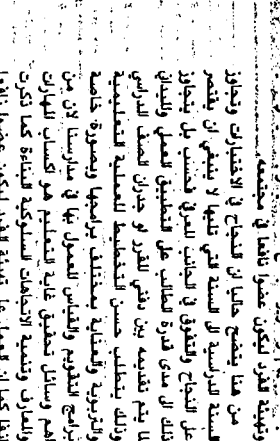 وتهيئة الفرد ليكون عضوا نافعا في مجتمعه.
من هنا يتضح جليا ان النجاح في الاختبارات وتجاوز
السنة الدراسية الى السنة التي تليها لا ينبغي ان يقتصر
على النجاح والتفوق في الجانب المعرفي فحسب بل يتجاوز
ذلك الى مدى قدرة الطالب على التطبيق العملي والميداني
لما يتم تقديمه بين دفتي المقرر او جدران الصف الدراسي
وذلك يتطلب حسن التخطيط للعملية التعليمية
والتربوية والعناية بمختلف برامجها وبصورة خاصة
برامج التقويم والقياس المعمول بها في مدارسنا لان من
اهم وسائل تحقيق غاية التعليم هو اكساب المهارات
والمعارف وتنمية الاتجاهات السلوكية البناءة كما ذكرت